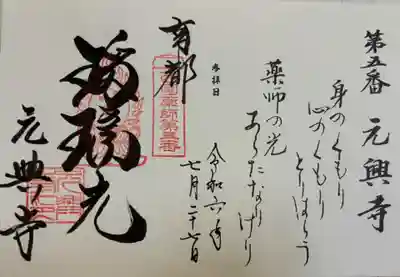 第五番 元興寺
身のくもり
心のくもり
とりはらう
薬師の光
あらたなりけり
参拝日
令和六年
七月二十七日
南都
西国薬師第五番
瑠璃光
元興寺